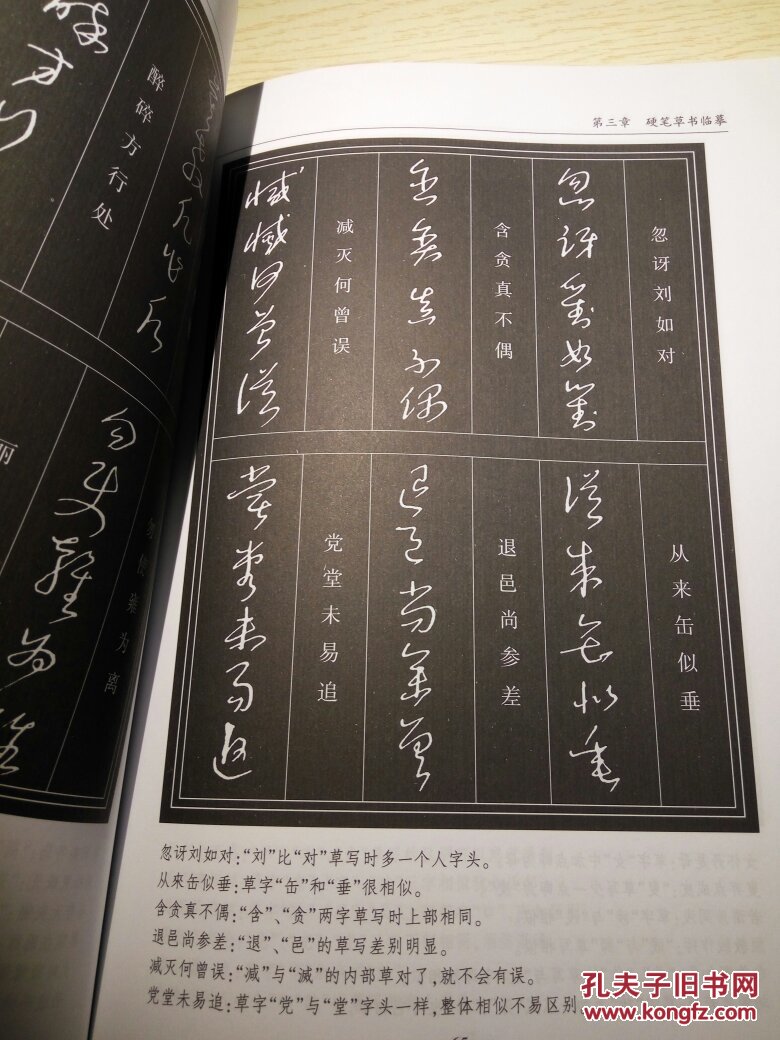 第三章 硬笔草书临摹
忽讶刘如对
含贪真不偶
减灭何曾误
从来缶似垂
退邑尚参差
党堂未易追
醉碎方行处
勿使雍为离
丽
忽讶刘如对:“刘”比“对”草写时多一个人字头。
从来缶似垂:草字“缶”和“垂”很相似。
含贪真不偶:“含”、“贪”两字草写时上部相同。
退邑尚参差:“退”、“邑”的草写差别明显。
减灭何曾误:“减”与“滅”的内部草对了,就不会有误。
党堂未易追:草字“党”与“堂”字头一样,整体相似不易区别
孔夫子旧书网
www.kongfz.com